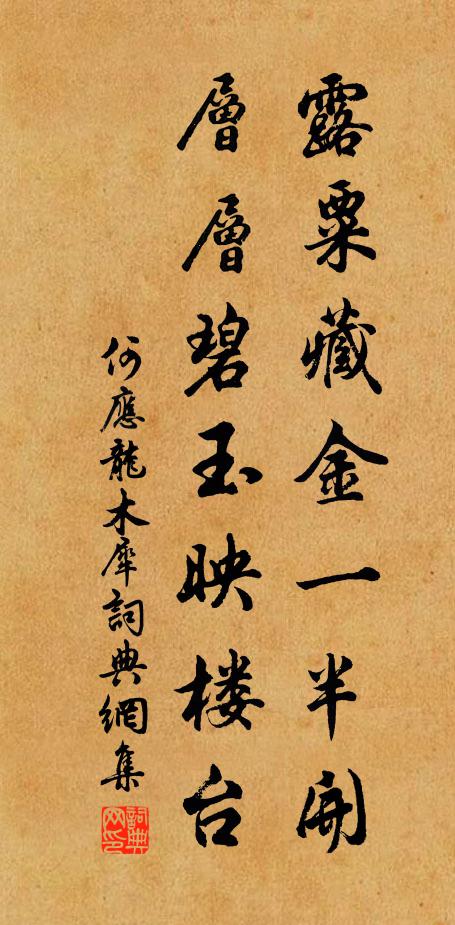 露粟藏金一半開
層層碧玉映楼台
何應龍木犀詞典網集
詞典網印